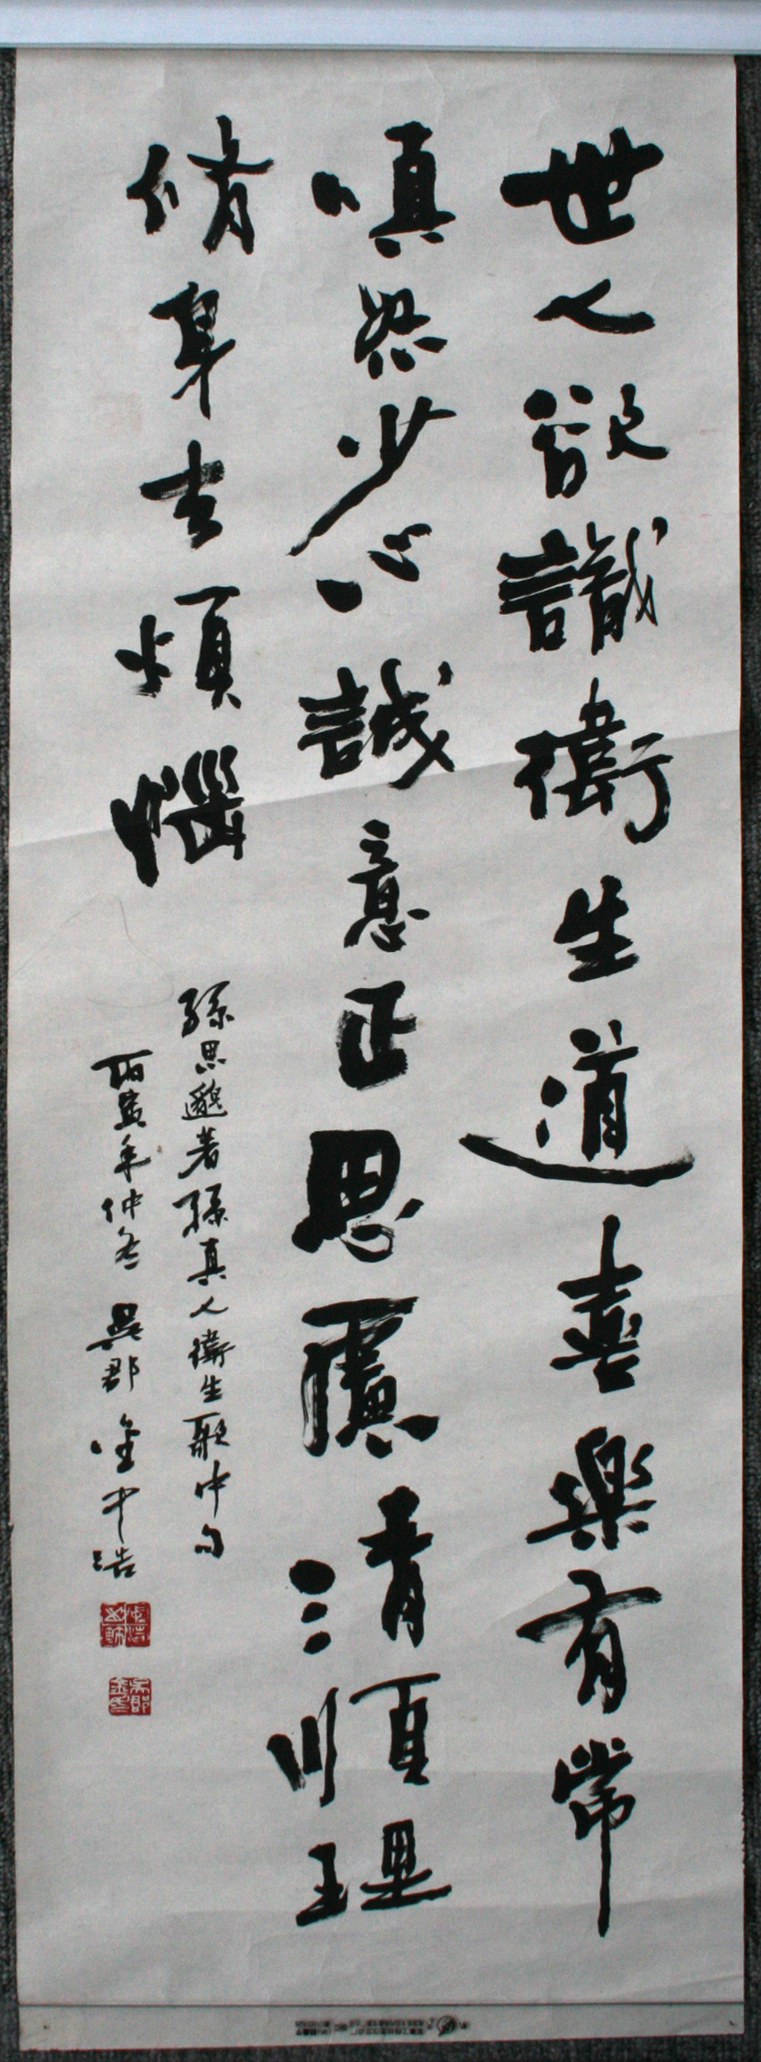 世人欲識衛生道喜樂有常
嗔怒少心誠意正思慮清順理
脩身去煩惱
孫思邈著孫真人衛生歌中句
年仲冬 吳郡 金中浩